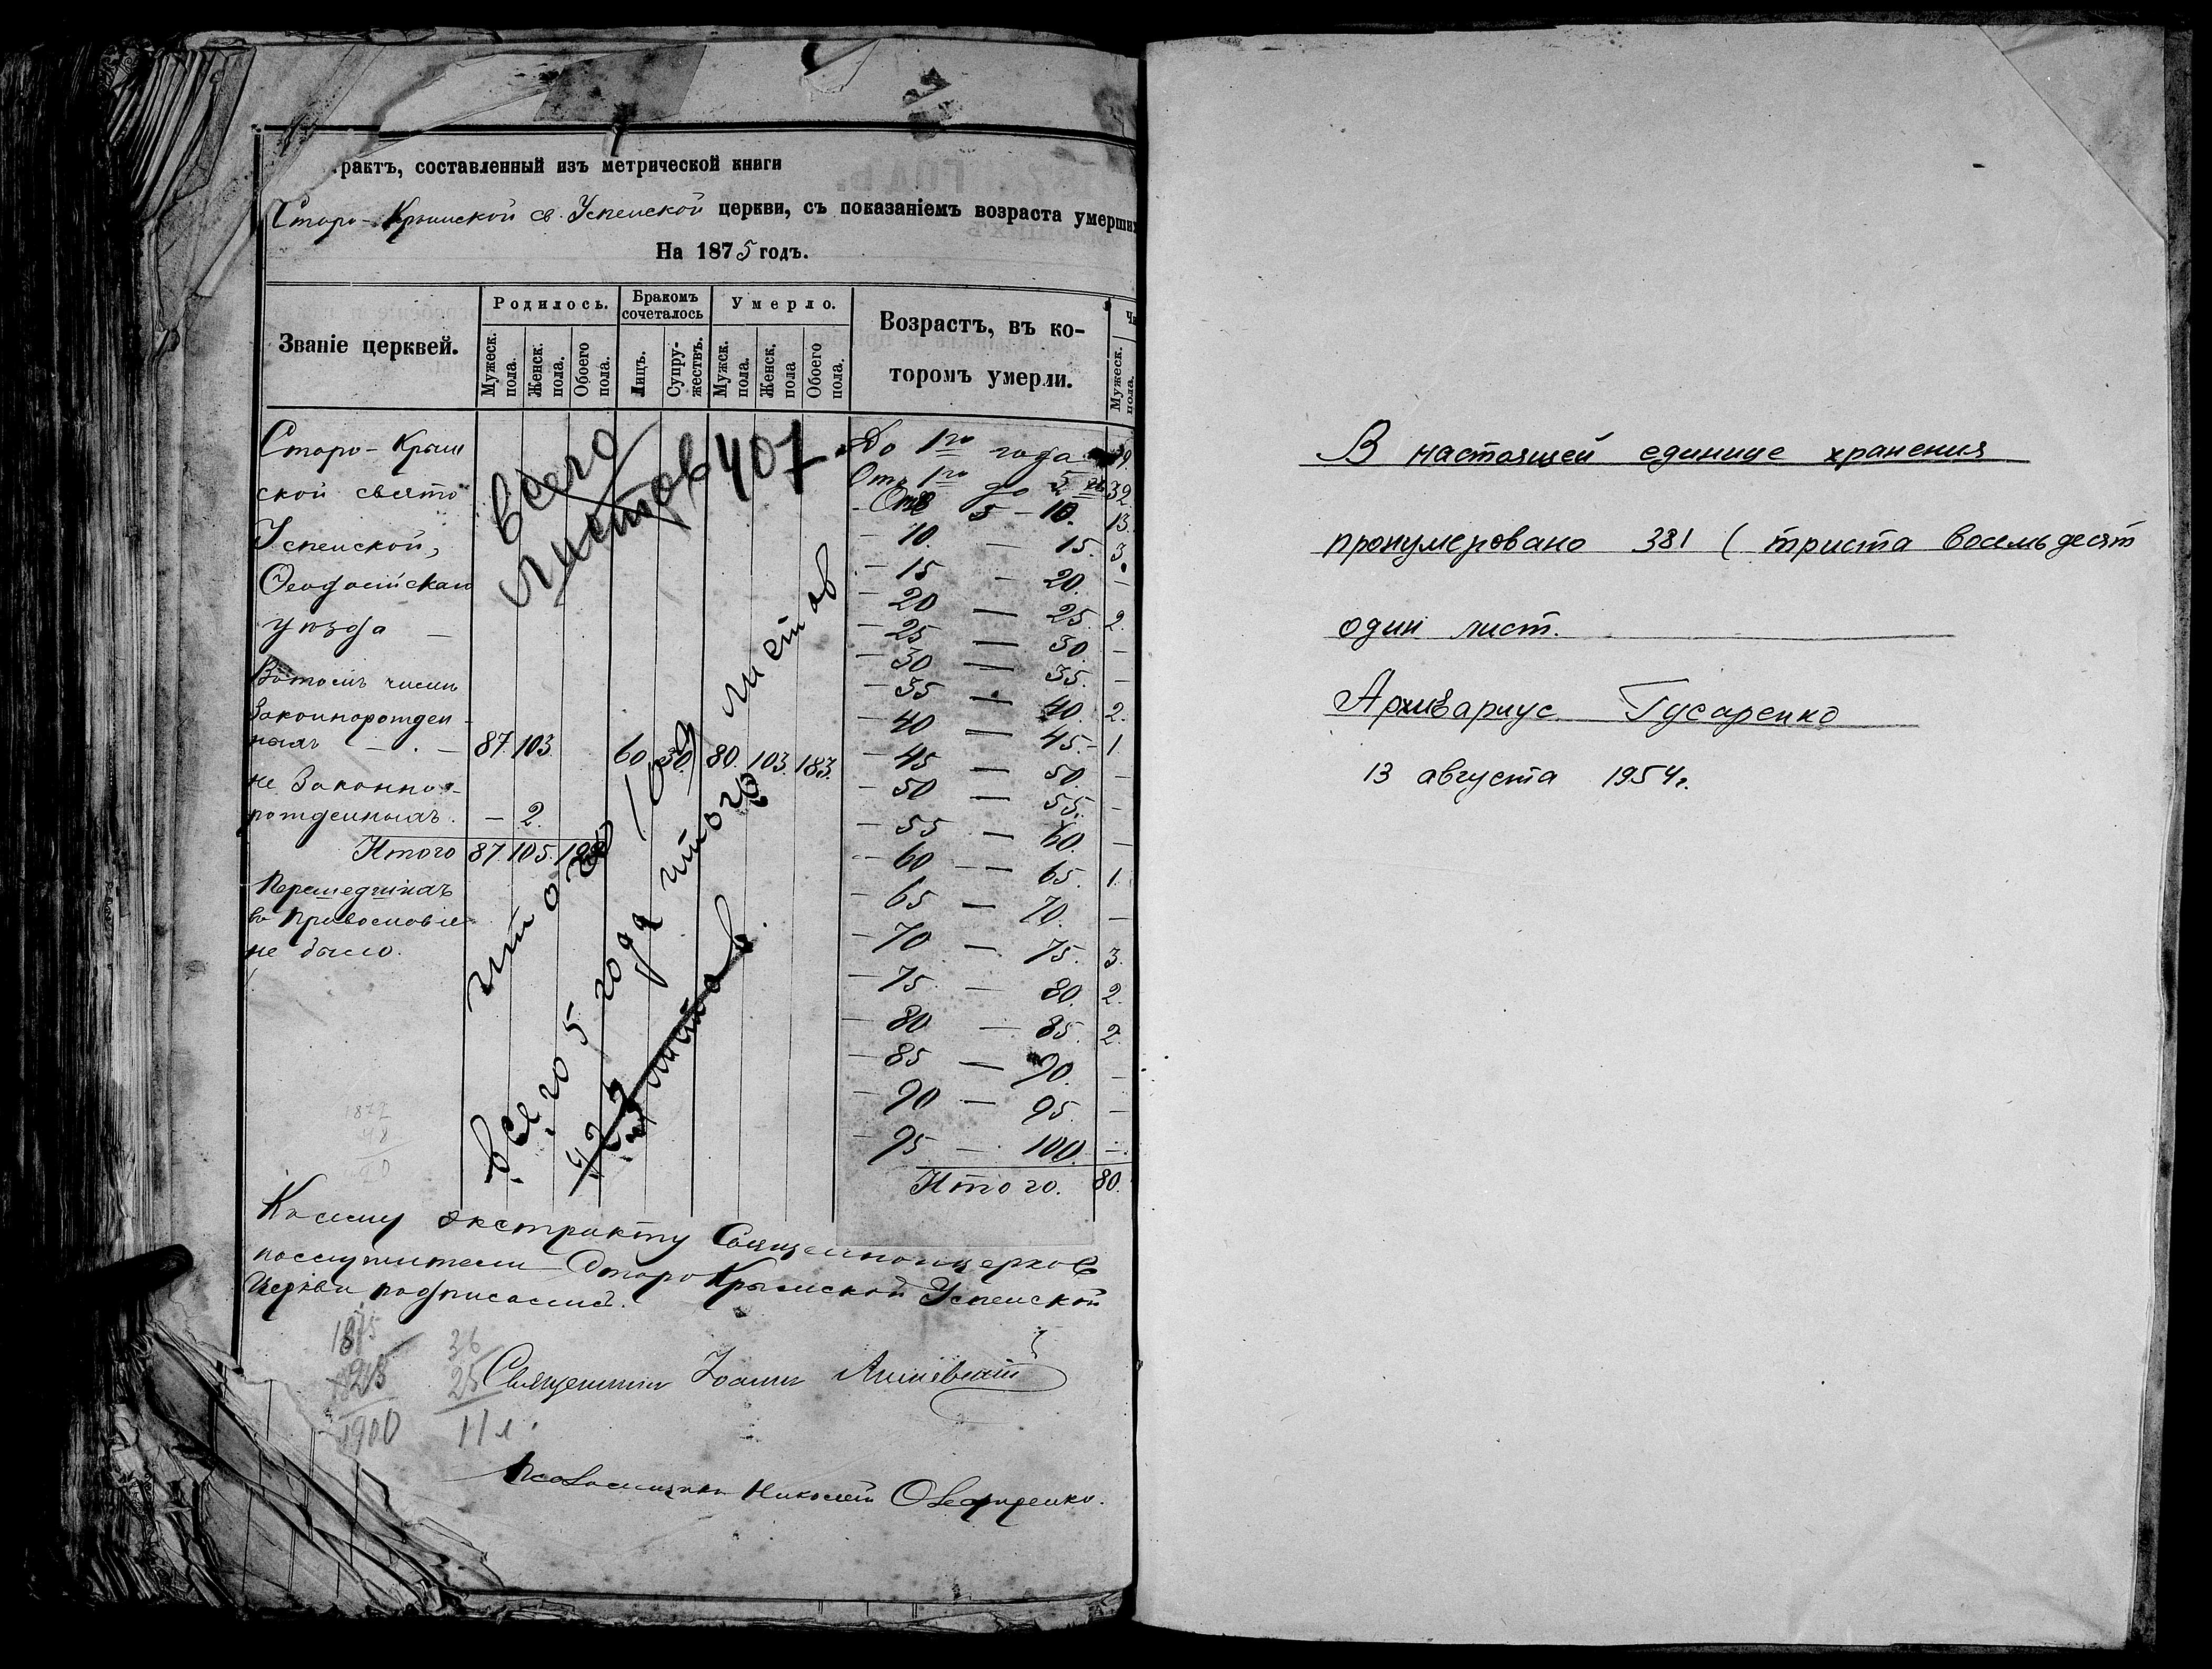 рактъ, составленный изъ метрической книги
Старо-Крымской св. Успенской церкви, съ показаніемъ возраста умерших
На 1875 годъ.
Званіе церквей.
Родилось.
Мужеск. пола.
Женск. пола.
Обоего пола.
Бракомъ сочеталось
Лицъ.
Супружествъ.
Умерло.
Мужск. пола.
Женск. пола
Обоего пола.
Возрастъ, въ которомъ умерли.
Мужеск. пола.
Старо-Крым
ской свято
Успенской,
Ѳеодосійскаго
уѣзда —
Вътомъ числѣ
Законнорожден-
ныхъ — . — 87. 103. 60. 30. 80. 103. 183.
не Законно-
рожденныхъ. — 2.
Итого 87. 105. 192
Перешедшихъ
въ Православіе
не было.
До 1го года
Отъ 1го до 5 32.
Отъ 5 — 10. 13.
— 10. — 15. 3.
— 15 — 20. —
— 20 — 25. 2.
— 25 — 30. —
— 30 — 35. —
— 35 — 40. 2.
— 40 — 45. 1.
— 45 — 50. —
— 50 — 55. —
— 55 — 60. —
— 60 — 65. 1.
— 65 — 70. —
— 70 — 75. 3.
— 75 — 80. 2.
— 80 — 85. 2.
— 85 — 90. —
— 90 — 95. —
— 95 — 100. —.
Итого. 80.
всего
листов 407
итого 109 листов
всего 5 года итого
листов
К семy экстракту Священноцерков
нослужители СтароКрымской Успенской
Церкви подписались.
1875 36
25 25
1900 11 л.
Священник Іоаннъ
Псаломщикъ Николай
В настоящей единице хранения
пронумеровано 381 (триста восемьдесят
один лист.
Архивариус Гусаренко
13 августа 1954г.